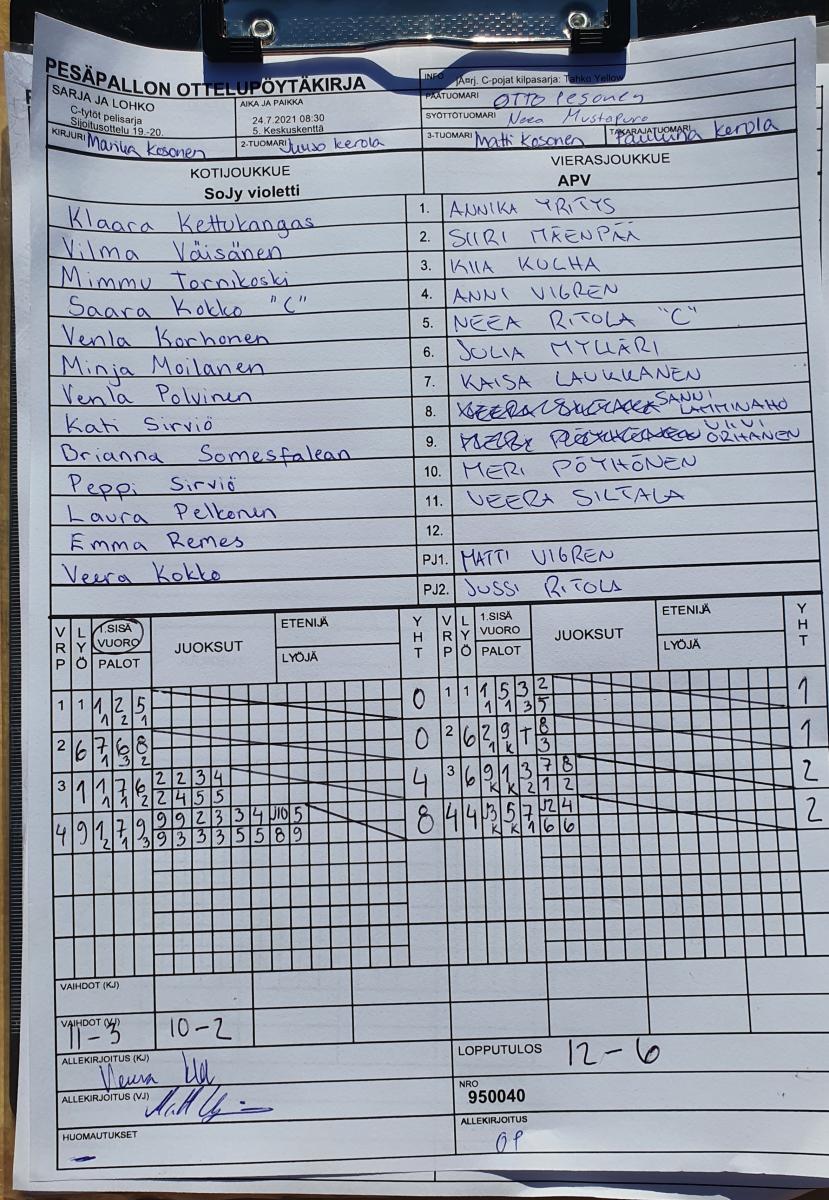 PESÄPALLON OTTELUPÖYTÄKIRJA
INFO
jA¤rj. C-pojat kilpasarja: Tahko Yellow
SARJA JA LOHKO
C-tytöt pelisarja
Sijoitusottelu 19.-20.
AIKA JA PAIKKA
24.7.2021 08:30
5. Keskuskenttä
PÄÄTUOMARI Otto Pesonen
SYÖTTÖTUOMARI Neea Mustapuro
KIRJURI Marika Kosonen
2-TUOMARI Juuso Kerola
3-TUOMARI Matti Kosonen
TAKARAJATUOMARI Pauliina Kerola
KOTIJOUKKUE
SoJy violetti
VIERASJOUKKUE
APV
Klaara Kettukangas 1. ANNIKA YRITYS
Vilma Väisänen 2. SIIRI MÄENPÄÄ
Mimmu Tornikoski 3. KIIA KULHA
Saara Kokko "C" 4. ANNI VIGREN
Venla Korhonen 5. NEEA RITOLA "C"
Minja Moilanen 6. JULIA MYLLÄRI
Venla Polvinen 7. KAISA LAUKKANEN
Kati Sirviö 8. SANNI LAMMINAHO
Brianna Somesfalean 9.
Peppi Sirviö 10. MERI PÖYHÖNEN
Laura Pelkonen 11. VEERA SILTALA
Emma Remes 12.
Veera Kokko PJ1. MATTI VIGREN
PJ2. JUSSI RITOLA
VRP LYÖ 1.SISÄ VUORO PALOT JUOKSUT ETENIJÄ LYÖJÄ YHT VRP LYÖ 1.SISÄ VUORO PALOT JUOKSUT ETENIJÄ LYÖJÄ YHT
1 1 1 2 5 0 1 1 1 5 3 2 1
1 2 1 1 1 3 5
2 6 7 6 8 0 2 6 2 9 T 8 1
1 3 2 1 K 3
3 1 1 7 6 2 2 3 4 4 3 6 9 1 3 7 8 2
1 1 2 2 4 5 5 K K 2 1 2
4 9 1 7 9 9 9 2 3 3 4 J10 5 8 4 4 J3 5 7 J2 4 2
2 1 3 9 3 3 3 5 5 8 9 K K 1 6 6
VAIHDOT (KJ)
VAIHDOT (VJ)
11-3 10-2
ALLEKIRJOITUS (KJ)
LOPPUTULOS 12-6
ALLEKIRJOITUS (VJ)
NRO
950040
HUOMAUTUKSET
-
ALLEKIRJOITUS
OP